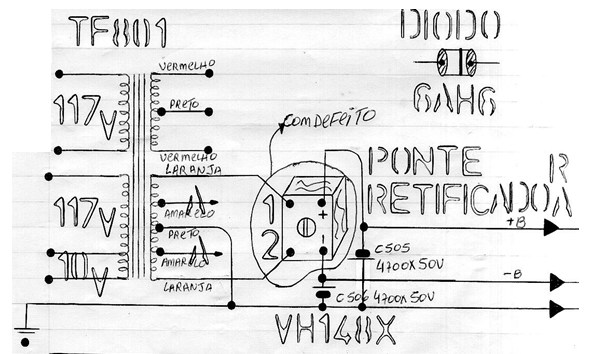 TF801
DIODO
6AH6
VERMELHO
117V
PRETO
VERMELHO
LARANJA
COM DEFEITO
PONTE
RETIFICADORA
117V
AMARELO
PRETO
AMARELO
10V
LARANJA
1
2
+
+B
C505
4700X50V
-B
C506 4700X50V
VH148X